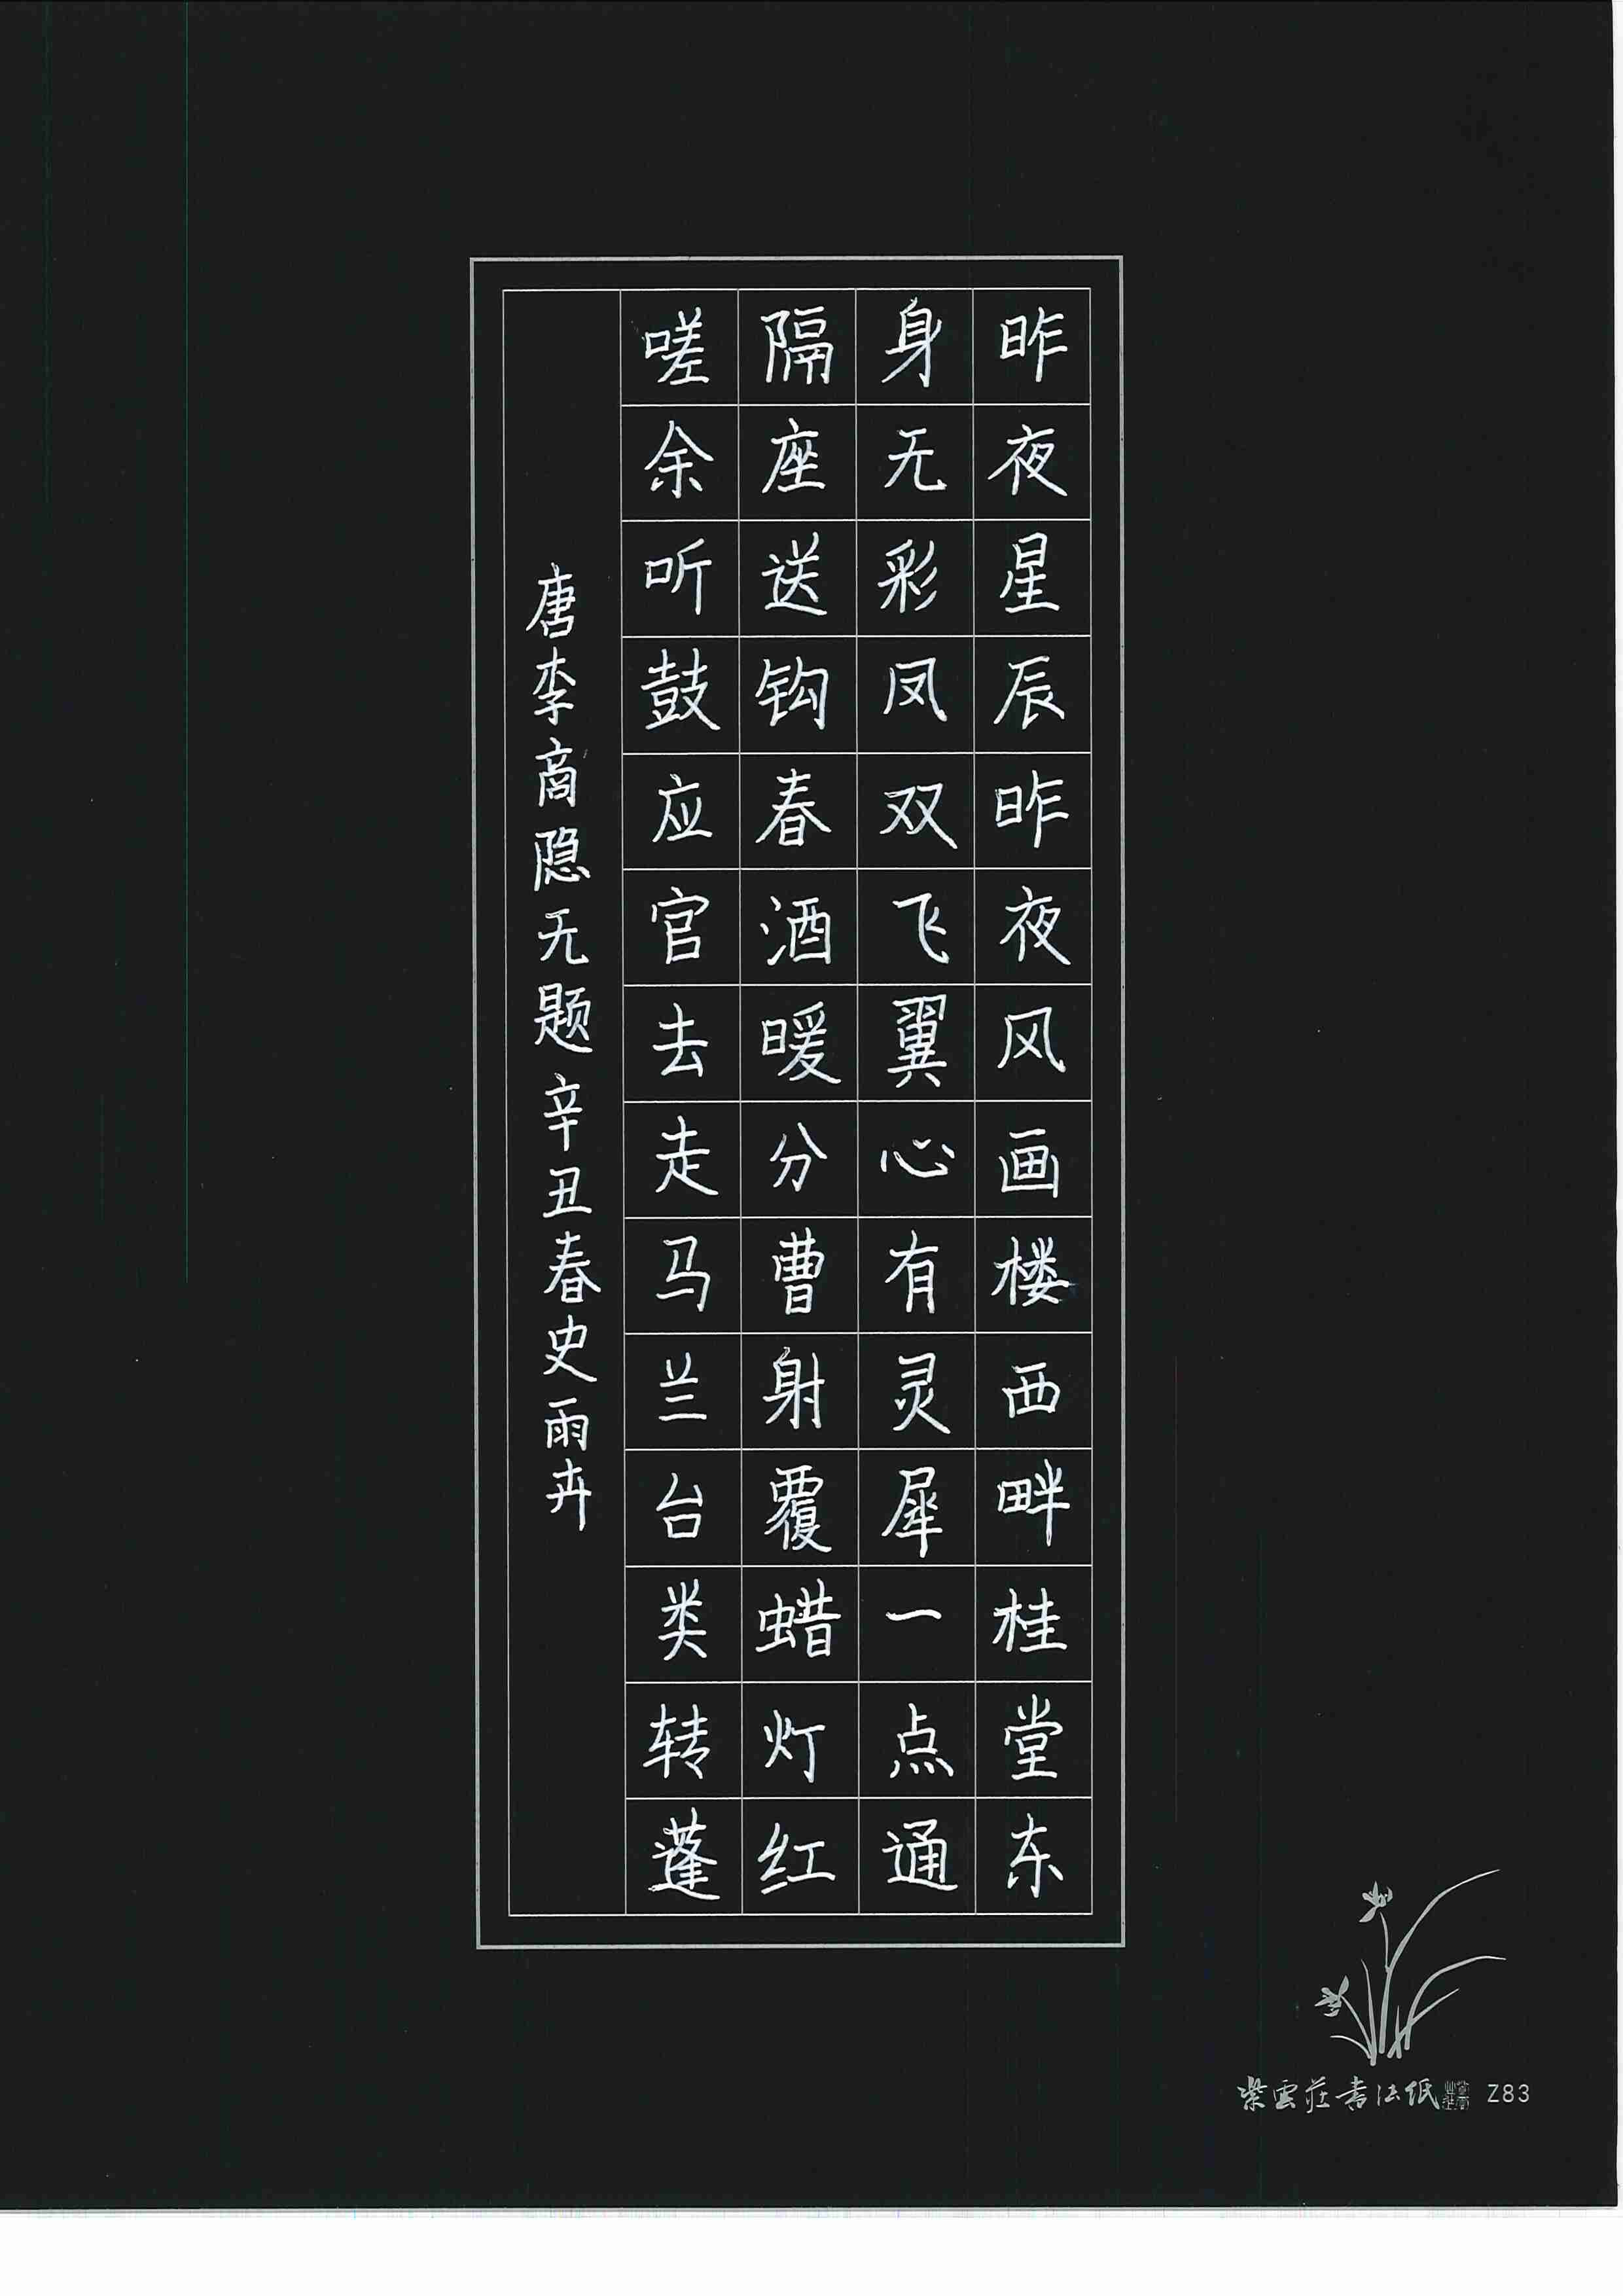 昨夜星辰昨夜风画楼西畔桂堂东
身无彩凤双飞翼心有灵犀一点通
隔座送钩春酒暖分曹射覆蜡灯红
嗟余听鼓应官去走马兰台类转蓬
唐李商隐无题辛丑春史雨卉
紫雲莊書法纸 Z83